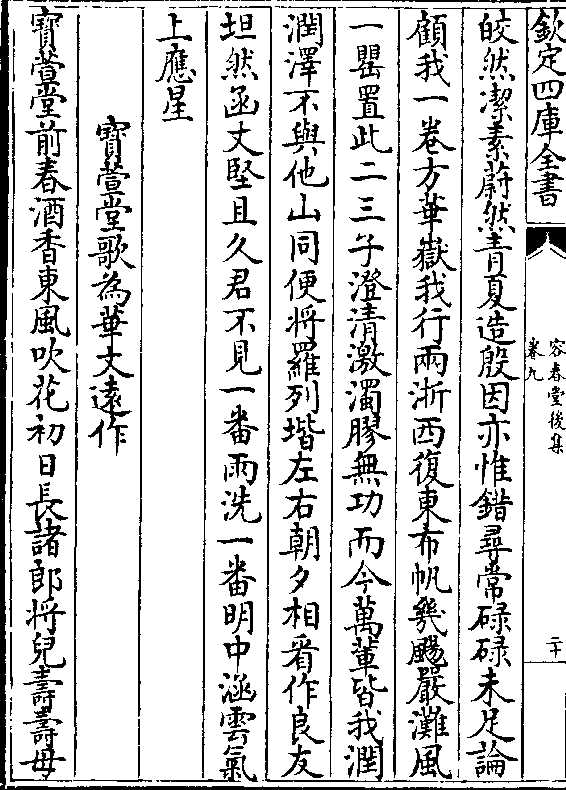 欽定四庫全書
容春堂後集
卷九
二十
皎然潔素蔚然青夏造殷因亦惟錯尋常碌碌未足論
顧我一卷方華嶽我行兩浙西復東布帆幾颺嚴灘風
一罌置此二三子澄清激濁膠無功而今萬輩皆我潤
潤澤不與他山同便將羅列堦左右朝夕相看作良友
坦然函丈堅且久君不見一番雨洗一番明中涵雲氣
上應星
寶萱堂歌為華文遠作
寶萱堂前春酒香東風吹花初日長諸郎將兒壽壽母